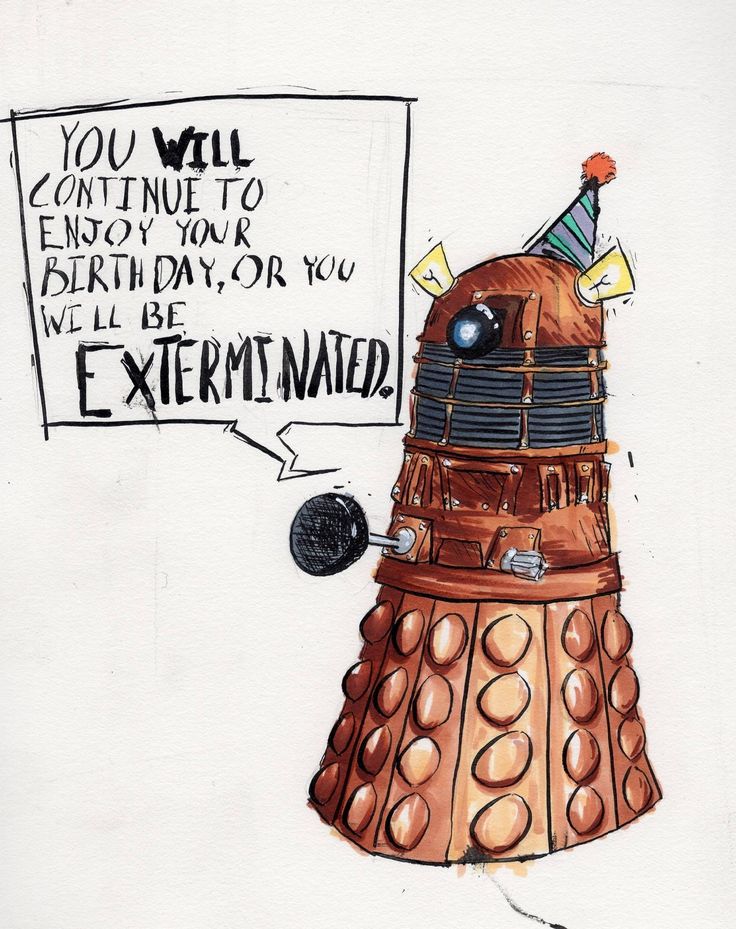 YOU WILL
CONTINUE TO
ENJOY YOUR
BIRTHDAY, OR YOU
WILL BE
EXTERMINATED.